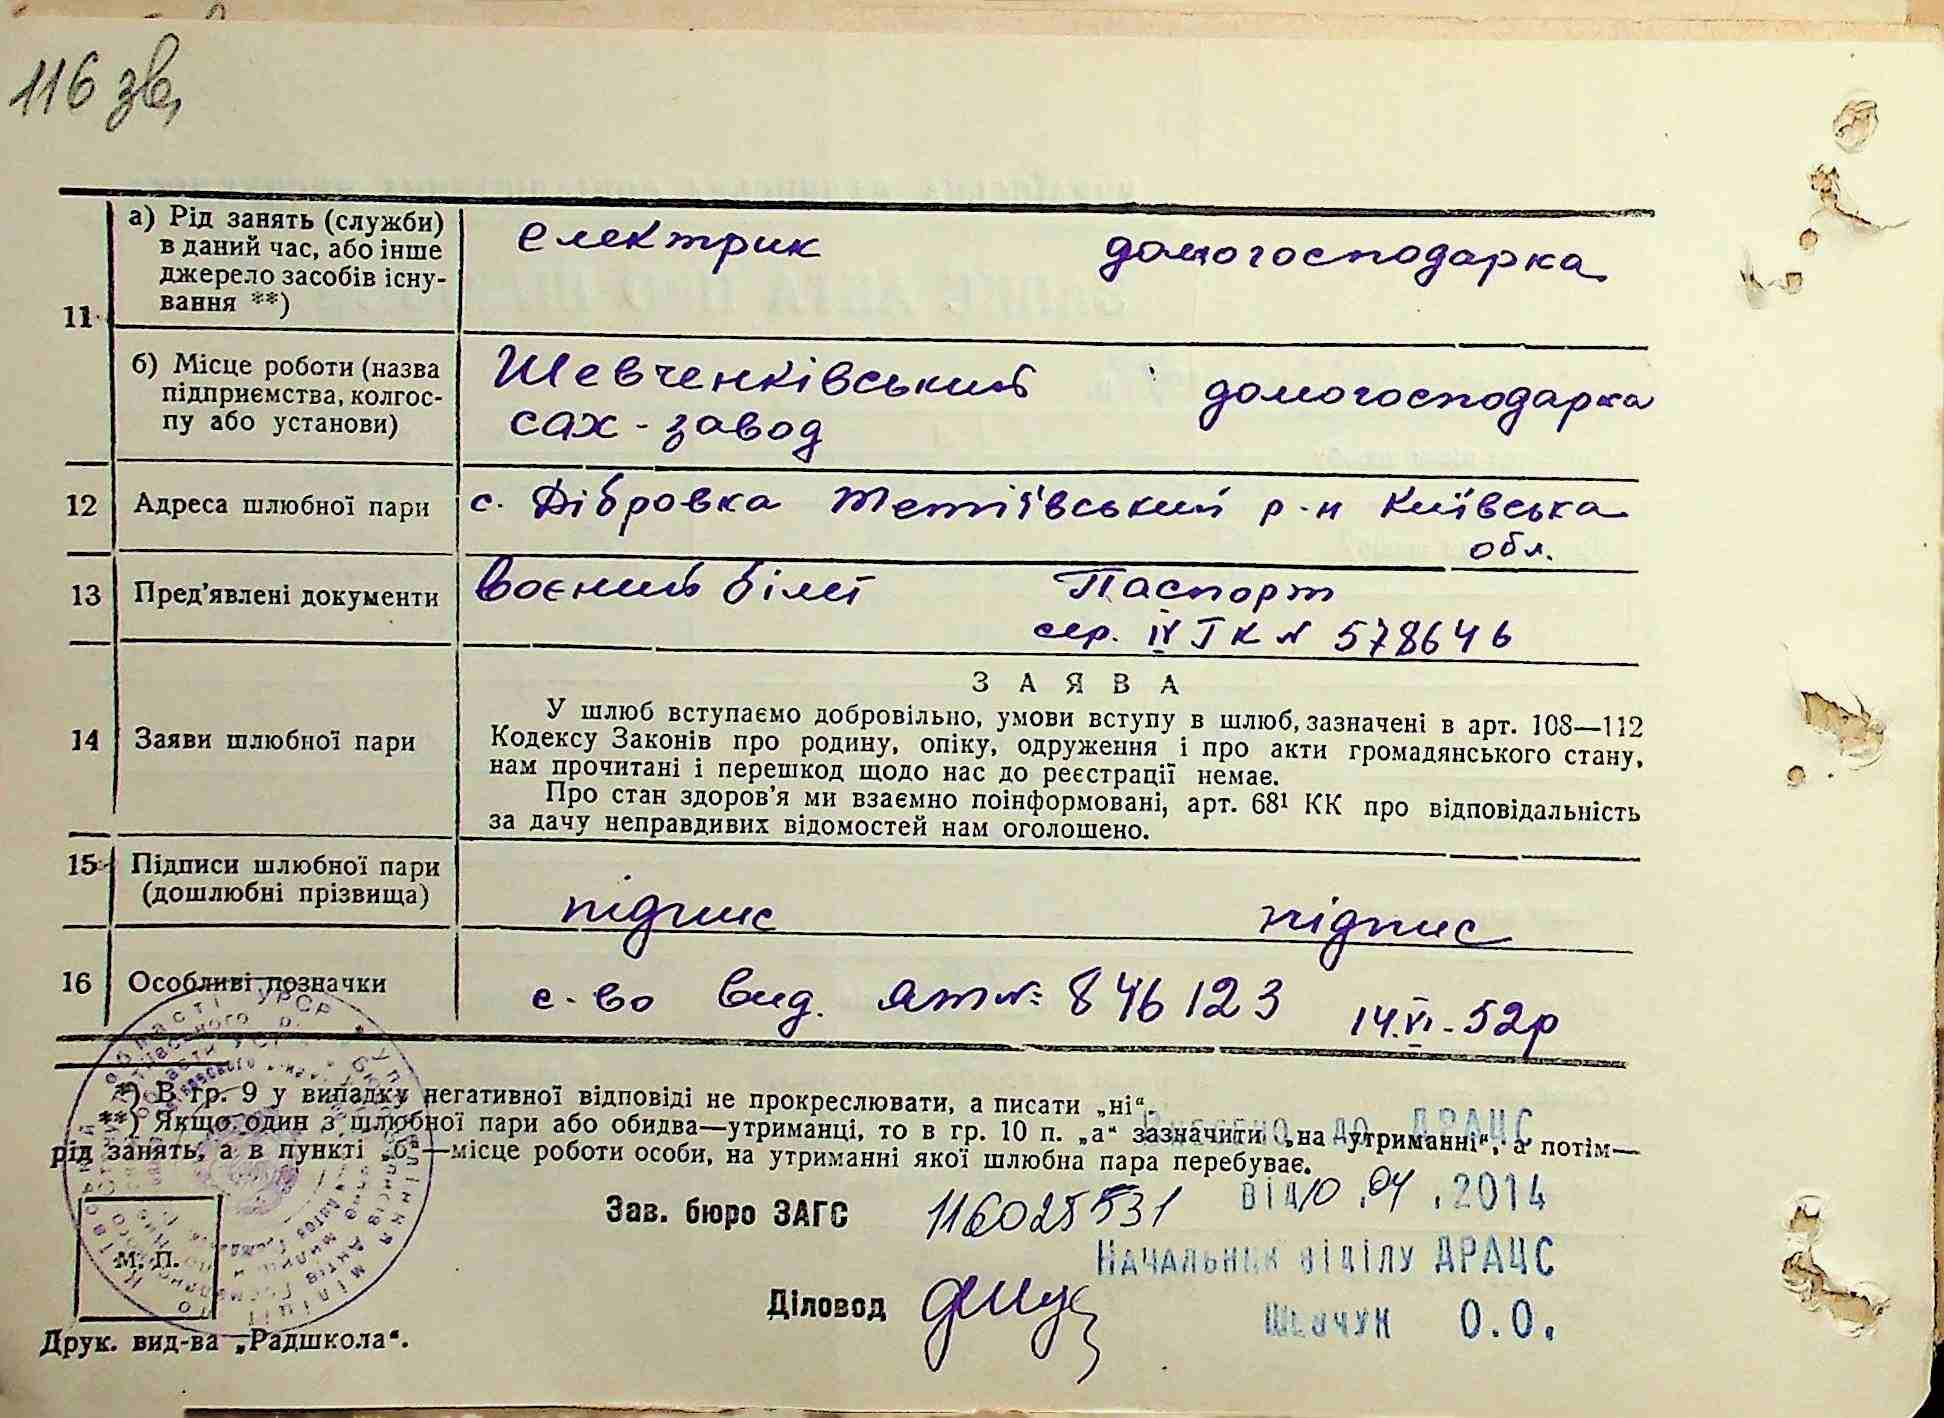 116 зв.
а) Рід занять (служби)
в даний час, або інше
джерело засобів існу-
вання **)
електрик домогосподарка
11
б) Місце роботи (назва
підприємства, колгос-
пу або установи)
Шевченківський домогосподарка
сах-завод
12 Адреса шлюбної пари с. Дібровка Тетіївський р-н Київська
обл.
13 Пред'явлені документи Воєний білет Паспорт
сер. IV ТК № 578646
ЗАЯВА
14 Заяви шлюбної пари
У шлюб вступаємо добровільно, умови вступу в шлюб, зазначені в арт. 108—112
Кодексу Законів про родину, опіку, одруження і про акти громадянського стану,
нам прочитані і перешкод щодо нас до реєстрації немає.
Про стан здоров'я ми взаємно поінформовані, арт. 68¹ КК про відповідальність
за дачу неправдивих відомостей нам оголошено.
15 Підписи шлюбної пари
(дошлюбні прізвища)
підпис підпис
16 Особливі позначки
с-во вид. ЯТ №: 846123 14.VI-52р
*) В гр. 9 у випадку негативної відповіді не прокреслювати, а писати „ні“.
**) Якщо один з шлюбної пари або обидва—утриманці, то в гр. 10 п. „а“ зазначити „на утриманні“, а потім—
рід занять, а в пункті „б“—місце роботи особи, на утриманні якої шлюбна пара перебуває.
Внесено до ДРАЦС
Зав. бюро ЗАГС 116025531 від 10.04.2014
Начальник відділу ДРАЦС
М. П.
Діловод Шевчук О.О.
Друк. вид-ва „Радшкола“.